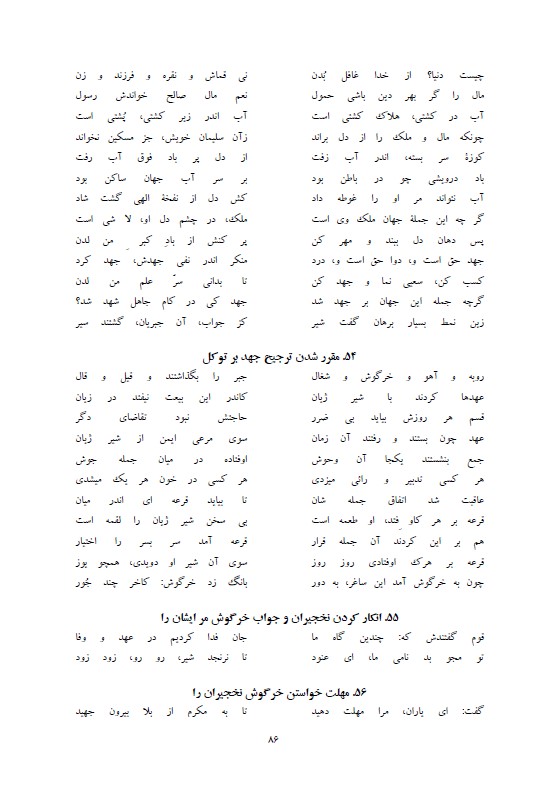 چیست دنیا؟ از خدا غافل بُدن نی قماش و نقره و فرزند و زن
مال را گر بهر دین باشی حمول نعم مال صالح خواندش رسول
آب در کشتی، هلاک کشتی است آب اندر زیر کشتی، پُشتی است
چونکه مال و ملک را از دل براند زآن سلیمان خویش، جز مسکین نخواند
کوزۀ سر بسته، اندر آب زفت از دل پر باد فوق آب رفت
باد درویشی چو در باطن بود بر سر آب جهان ساکن بود
آب نتواند مر او را غوطه داد کش دل از نفخۀ الهی گشت شاد
گر چه این جملۀ جهان ملک وی است ملک، در چشم دل او، لا شی است
پس دهان دل ببند و مهر کن پر کنش از بادِ کبر ِ من لدن
جهد حق است و، دوا حق است و، درد منکر اندر نفی جهدش، جهد کرد
کسب کن، سعیی نما و جهد کن تا بدانی سرّ علم من لدن
گرچه جمله این جهان بر جهد شد جهد کی در کام جاهل شهد شد؟
زین نمط بسیار برهان گفت شیر کز جواب، آن جبریان، گشتند سیر
۵۴. مقرر شدن ترجیح جهد بر توکل
روبه و آهو و خرگوش و شغال جبر را بگذاشتند و قیل و قال
عهدها کردند با شیر ژیان کاندر این بیعت نیفتد در زیان
قسم هر روزش بیاید بی ضرر حاجتش نبود تقاضای دگر
عهد چون بستند و رفتند آن زمان سوی مرعی ایمن از شیر ژیان
جمع بنشستند یکجا آن وحوش اوفتاده در میان جمله جوش
هر کسی تدبیر و رائی میزدی هر کسی در خون هر یک میشدی
عاقبت شد اتفاق جمله شان تا بیاید قرعه ای اندر میان
قرعه بر هر کاو فِتد، او طعمه است بی سخن شیر ژیان را لقمه است
هم بر این کردند آن جمله قرار قرعه آمد سر بسر را اختیار
قرعه بر هرک اوفتادی روز روز سوی آن شیر او دویدی، همچو یوز
چون به خرگوش آمد این ساغر، به دور بانگ زد خرگوش: کاخر چند جُور
۵۵. انکار کردن نخجیران و جواب خرگوش مر ایشان را
قوم گفتندش که: چندین گاه ما جان فدا کردیم در عهد و وفا
تو مجو بد نامی ما، ای عنود تا نرنجد شیر، رو رو، زود زود
۵۶. مهلت خواستن خرگوش نخجیران را
گفت: ای یاران، مرا مهلت دهید تا به مکرم از بلا بیرون جهید
۸۶